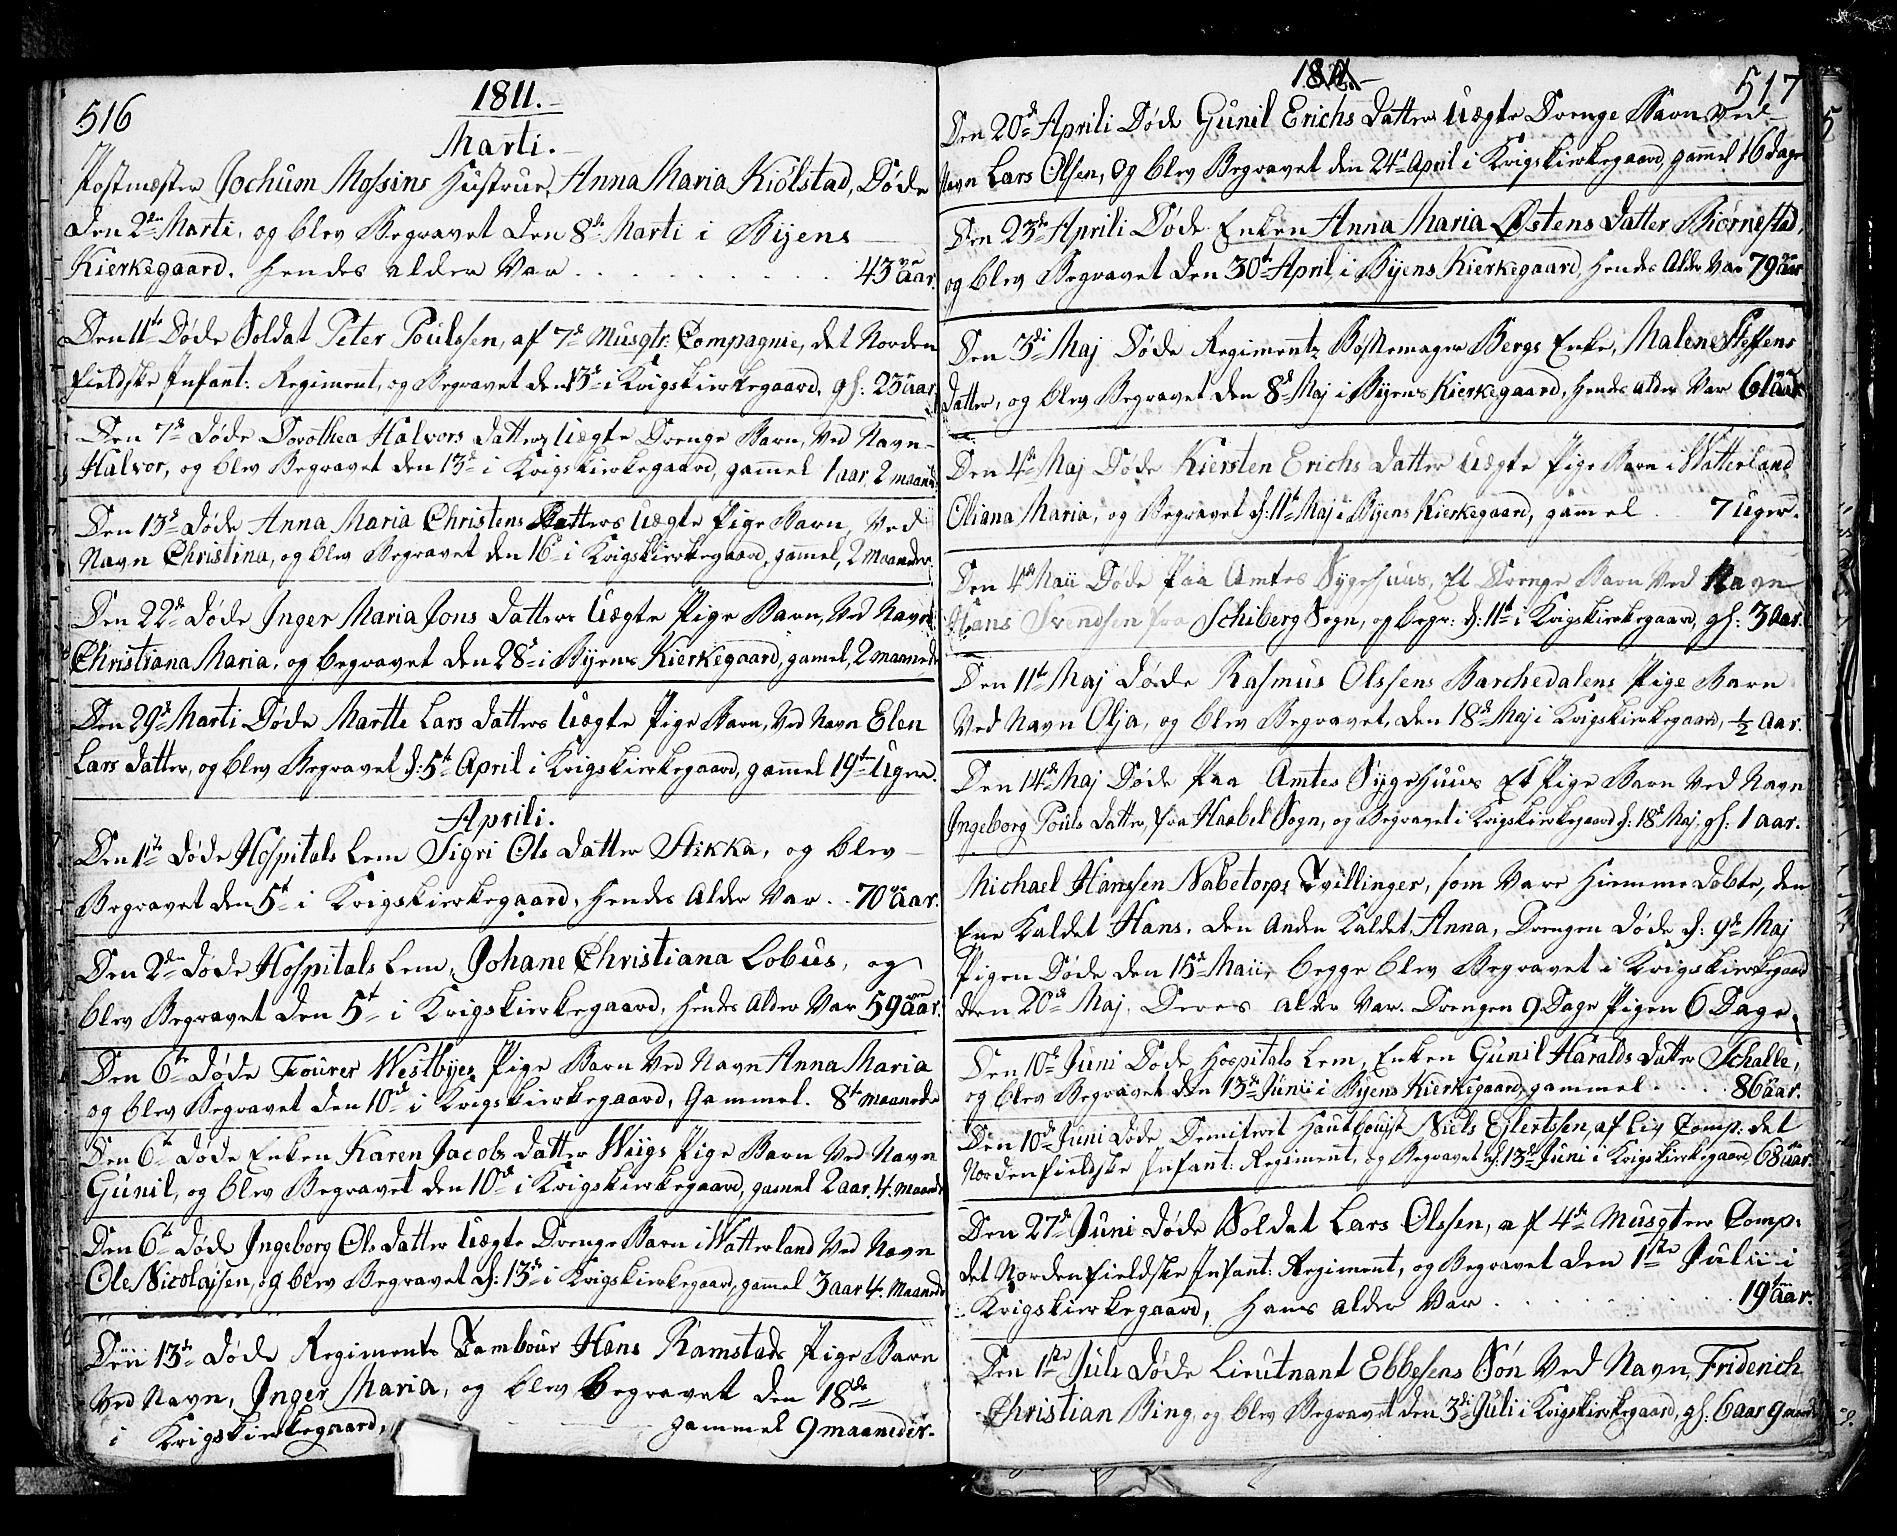 516
1811.
Marti.
Postmæster Jochum Mossins Hustrue, Anna Maria Kiölstad, Døde
den 2den Marti, og blev Begravet den 8de Marti i Byens
Kierkegaard. hendes alder Var . . . 43 aar.
Den 11te Døde Soldat Peter Poulssen, af 7de Musqtr: Compagnie, det Norden
fieldske Infant: Regiment, og Begravet den 13de i Krigskierkegaard. gl: 23 aar.
Den 7de Døde Dorothea Halvors datters Uægte Drenge Barn, Ved Navn
Halvor, og blev Begravet den 13de i Krigskierkegaard, gammel 1 aar, 2 maaned
Den 13de Døde Anna Maria Christens Datters Uægte Pige Barn, Ved
Navn Christina, og blev Begravet den 16de i Krigskierkegaard, gammel, 2 Maaneder.
Den 22de Døde Inger Maria Jons datters Uægte Pige Barn, Ved Navn
Christiana Maria, og begravet den 28de i Byens Kierkegaard, gamel, 2 maaneder
Den 29de Marti Døde Marthe Lars datters Uægte Pige Barn, Ved Navn Elen
Lars datter, og blev Begravet d: 5te April i Krigskierkegaard, gammel 19ten Uger.
Aprili.
Den 1ste Døde Hospitals Lem Sigri Ols datter Stikka, og blev
Begravet den 5te i Krigskierkegaard, hendes Alder Var . . 70 aar.
Den 2den Døde Hospitals Lem, Johane Christiana Lobus, og
blev Begravet den 5te i Krigskierkegaard, hendes Alder Var 59 aar.
Den 6te Døde Fourer Westbyes Pige Barn Ved Navn Anna Maria
og blev Begravet den 10de i Krigskierkegaard, Gammel. 8te maaneder
Den 6te Døde Enken Karen Jacobs datter Wiigs Pige Barn Ved Navn
Gunil, og blev Begravet den 10de i Krigskierkegaard, gamel 2 aar, 4. Maaneder
Den 6te Døde Ingeborg Ols datter Uægte Drenge Barn i Watterland Ved Navn
Ole Nicolaisen, og blev Begravet d: 13de i Krigskierkegaard, gamel 3 aar 4. Maaneder
Den 13de Døde Regiments Tambour Hans Ramstads Pige Barn
Ved Navn, Inger Maria, og blev begravet den 18de
i Krigskierkegaard, gammel 9 maaneder.
1811.
517
Den 20de Aprili Døde Gunil Erichs datters Uægte Drenge Barn Ved
Navn Lars Olsen, og blev Begravet den 24de April i Krigskierkegaard, gammel 16 dage
Den 23de Aprili Døde Enken Anna Maria Østens datter Biørnestad,
og blev Begravet den 30te April, i Byens Kierkegaard, hendes Alder Var 79 aar
Den 3die Maj Døde Regiments Bøssemager Bergs Enke, Malene Steffens
datter, og blev Begravet den 8de Maj i Byens Kierkegaard, hendes alder Var 61 aar
Den 4de Maj Døde Kiersten Erichs datter Uægte Pige Barn i Watterland
Oliana Maria, og Begravet d: 11te Maj i Byens Kierkegaard, gammel . 7 Uger.
Den 4de Maii Døde Paa Amtes Sygehuus, Et Drenge Barn Ved Navn
Hans Svendsen fra Schiberg Sogn, og begr: d: 11te i Krigskierkegaard, gl: 3 aar.
Den 11te Maj Døde Rasmus Olssens Barchedalens Pige Barn
Ved Navn Olja, og blev Begravet, den 18de Maj i Krigskierkegaard, ½ aar.
Den 14de Maj Døde Paa Amtes Sygehuus Et Pige Barn Ved Navn
Ingeborg Pouls datter, fra Haabel Sogn, og Begravet i Krigskierkegaard d: 18de Maj, gl: 1 aar.
Michael Hanssen Nabetorps Tvillinger, som Vare Hiemmedøbte, den
Ene Kaldet Hans, den Anden Kaldet, Anna, Drengen Døde d: 9de Maj
Pigen Døde den 15de Maii, begge blev Begravet i Krigskierkegaard
den 20de Maj. Deres alder Var. Drengen 9 Dage Pigen 6 Dage.
Den 10de Juni Døde Hospitals Lem, Enken Gunil Haralds datter Schalle,
og blev Begravet den 13de Junii i Byens Kierkegaard, gammel . . . 86 aar.
Den 10de Juni Døde Demiteret Hautboist Niels Ejlertsen, af Liv Comp: det
Nordenfieldske Infant: Regiment, og Begravet d: 13de Juni i Krigskierkegaard 68 aar.
Den 27de Juni Døde Soldat Lars Olssen, af 4de Musqter Comp:
det Nordenfieldske Infant: Regiment, og Begravet den 1ste Julii i
Krigskierkegaard, Hans alder Var . . . 19 aar.
Den 1ste Juli Døde Lieutnant Ebbesens Søn Ved Navn, Friderich
Christian Bing, og blev Begravet den 3die Juli i Krigskierkegaard, gl: 6 aar 9 maaned